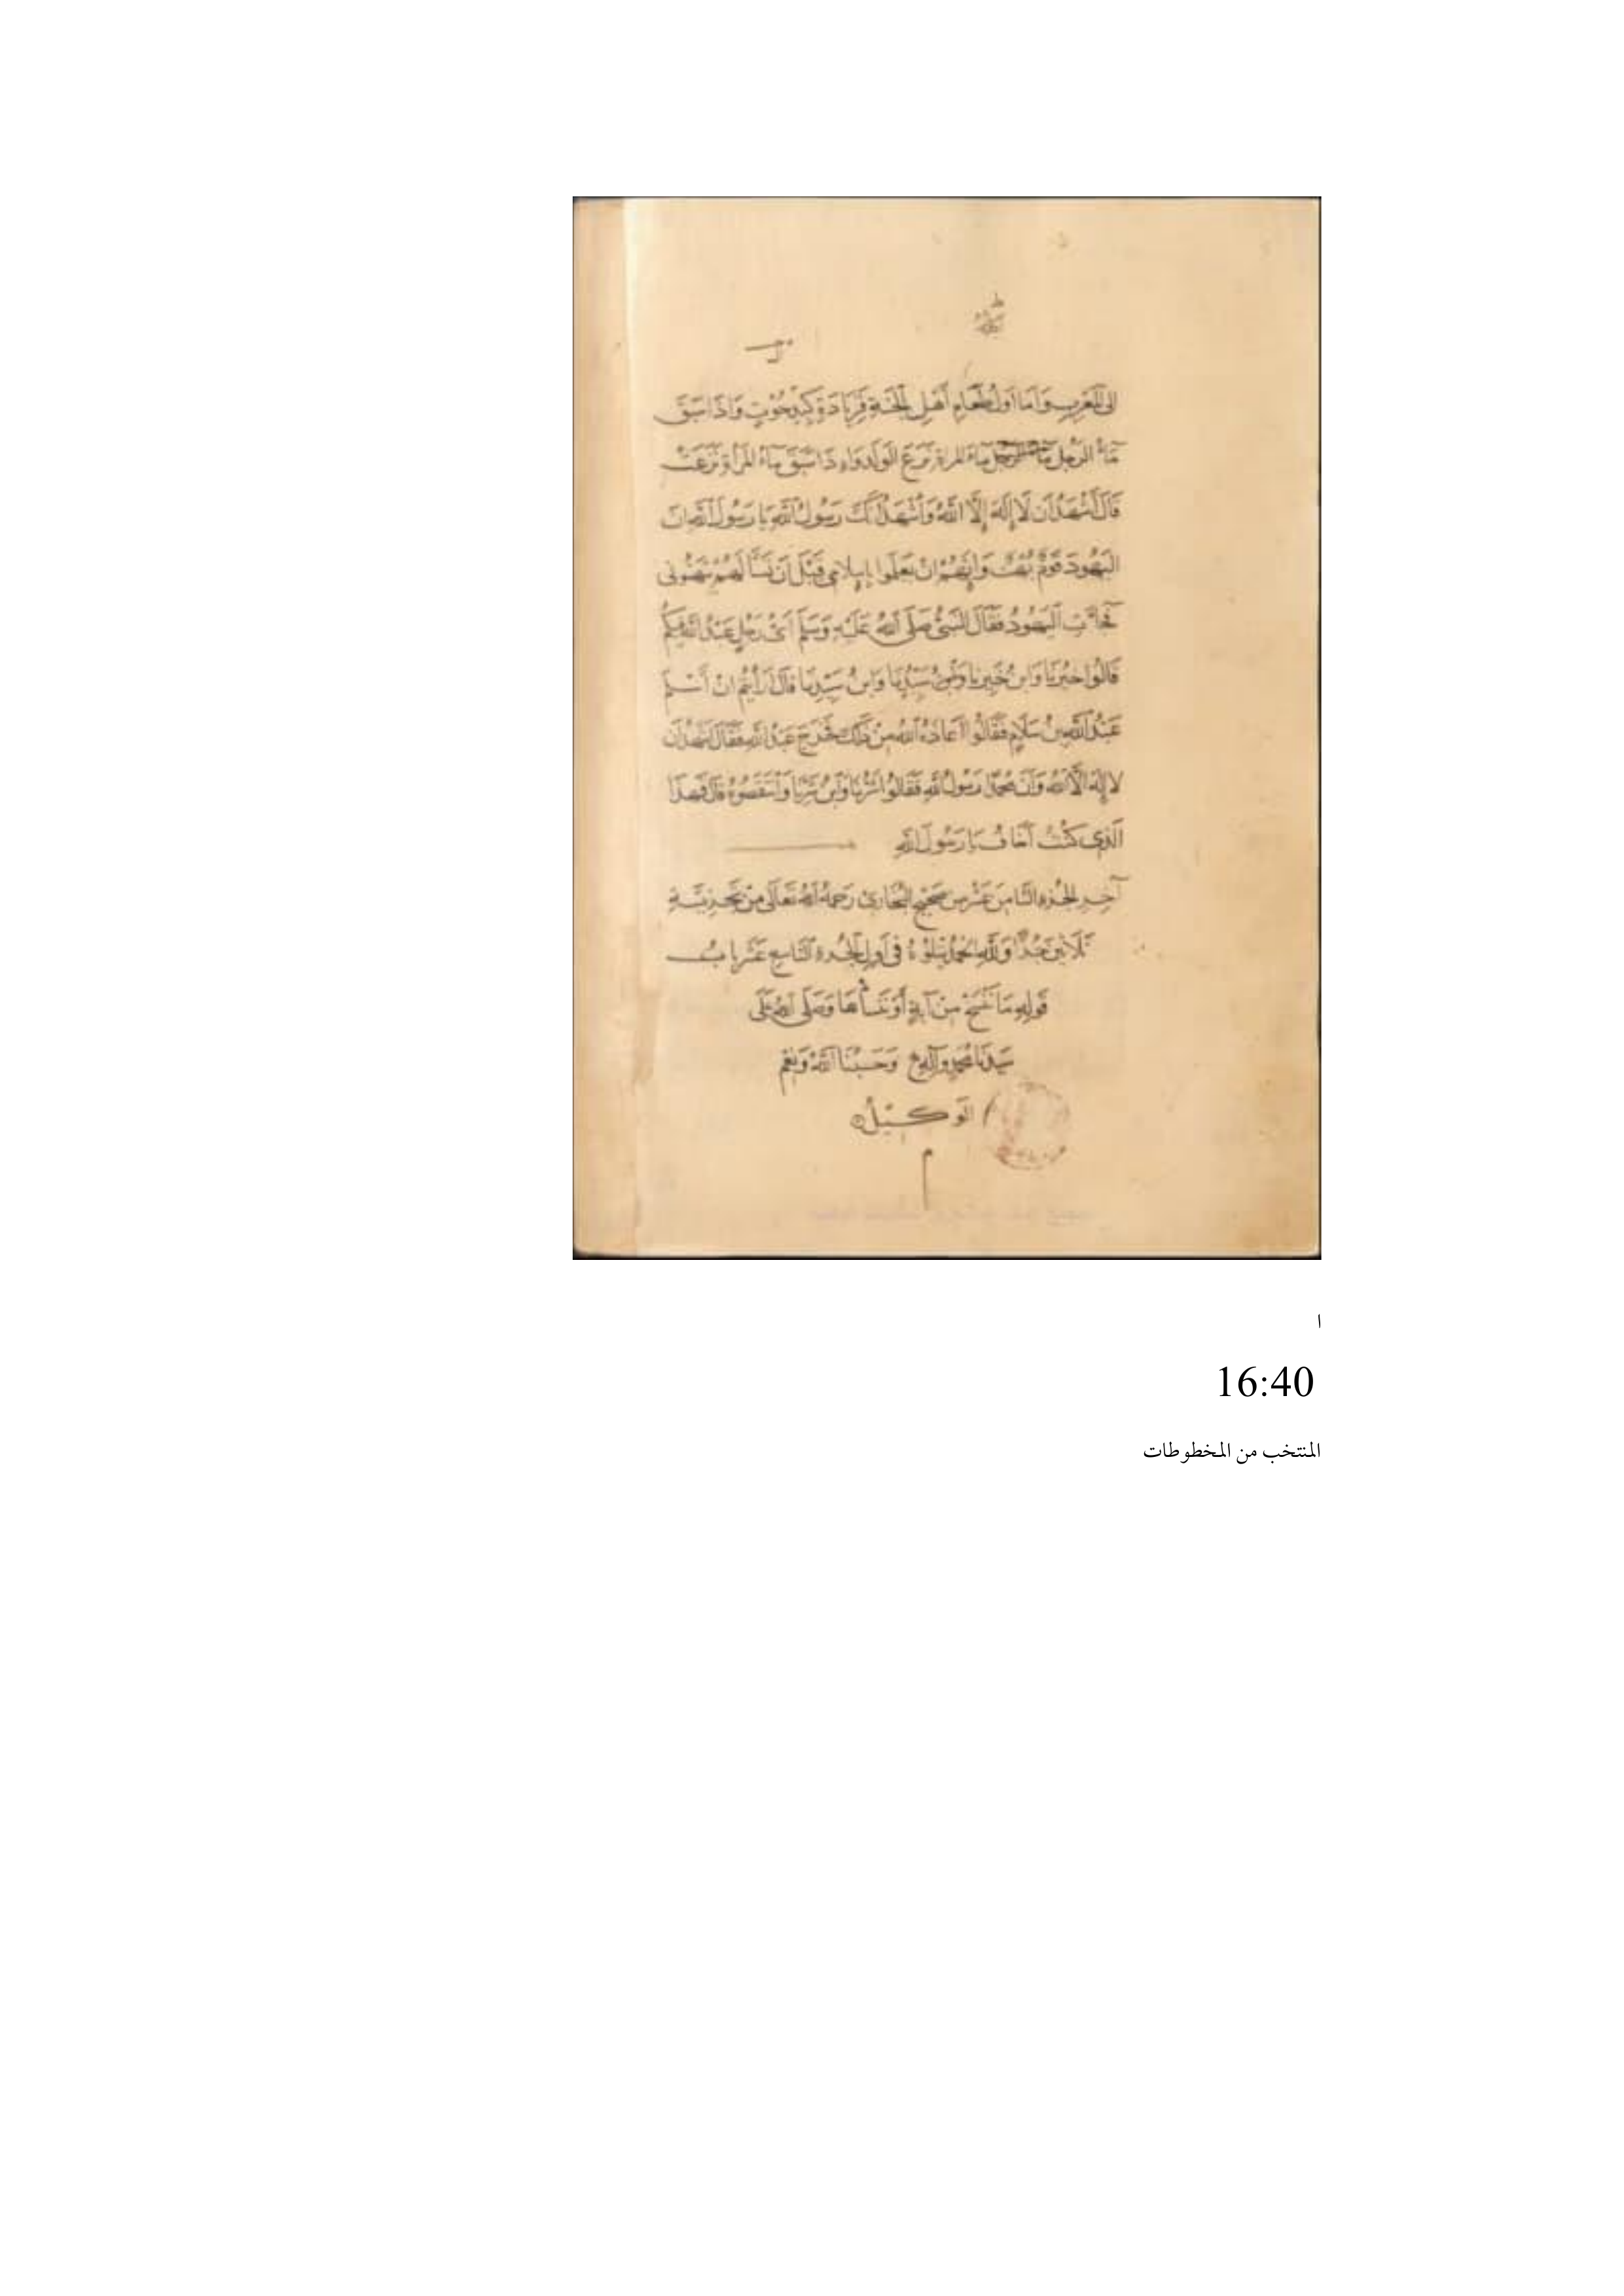 الى المغرب وأما أول طعام أهل الجنة فزيادة كبد حوت واذا سبق
ماء الرجل ماء المراة نزع الولد واذا سبق ماء المرأة نزعت
قال أشهد أن لا إله إلا الله وأشهد أنك رسول الله يا رسول الله ان
اليهود قوم بهت وإنهم ان يعلموا بإسلامي قبل أن تسألهم بهتوني
فجاءت اليهود فقال النبي صلى الله عليه وسلم أي رجل عبد الله فيكم
قالوا خيرنا وابن خيرنا وسيدنا وابن سيدنا قال أرأيتم ان أسلم
عبد الله بن سلام فقالوا أعاذه الله من ذلك فخرج عبد الله فقال أشهد أن
لا إله الا الله وأن محمدا رسول الله فقالوا شرنا وابن شرنا وانتقصوه قال فهذا
الذي كنت أخاف يا رسول الله
آخر الجزء الثامن عشر من صحيح البخاري رحمه الله تعالى من تجزئة
ثلاثين جزءا ولله الحمد يتلوه في أول الجزء التاسع عشر باب
قوله ما ننسخ من آية أو ننسأها وصلى الله على
سيدنا محمد وآله وحسبنا الله ونعم
الوكيل
ا
16:40
المنتخب من المخطوطات